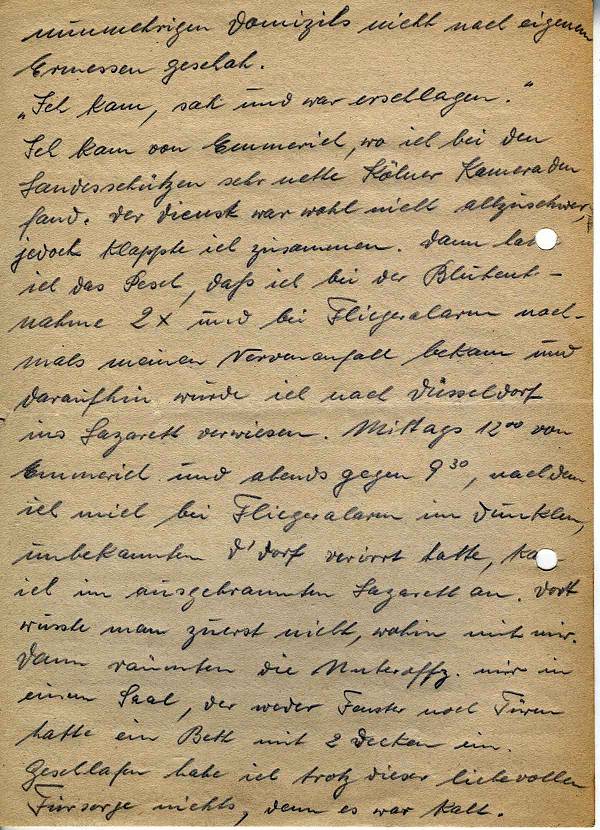 nunmehrigen Domizils nicht nach eigenem
Ermessen geschah.
„Ich kam, sah und war erschlagen.“
Ich kam von Emmerich, wo ich bei den
Landesschützen sehr nette Kölner Kameraden
fand. Der Dienst war wohl nicht allzuschwer,
jedoch klappte ich zusammen. Dann
ich das Pech, daß ich bei der Blutent-
nahme 2x und bei Fliegeralarm noch-
mals meinen Nervenanfall bekam und
daraufhin wurde ich nach Düsseldorf
ins Lazarett verwiesen. Mittags 12⁰⁰ von
Emmerich und abends gegen 9³⁰, nachdem
ich mich bei Fliegeralarm im dunklen,
unbekannten D'dorf verirrt hatte,
ich im ausgebrannten Lazarett an. Dort
wusste man zuerst nicht, wohin mit mir.
Dann räumten die Unteroffz. mir in
einem Saal, der weder Fenster noch Türen
hatte ein Bett mit 2 Decken ein.
Geschlafen habe ich trotz dieser liebevollen
Fürsorge nichts, denn es war kalt.